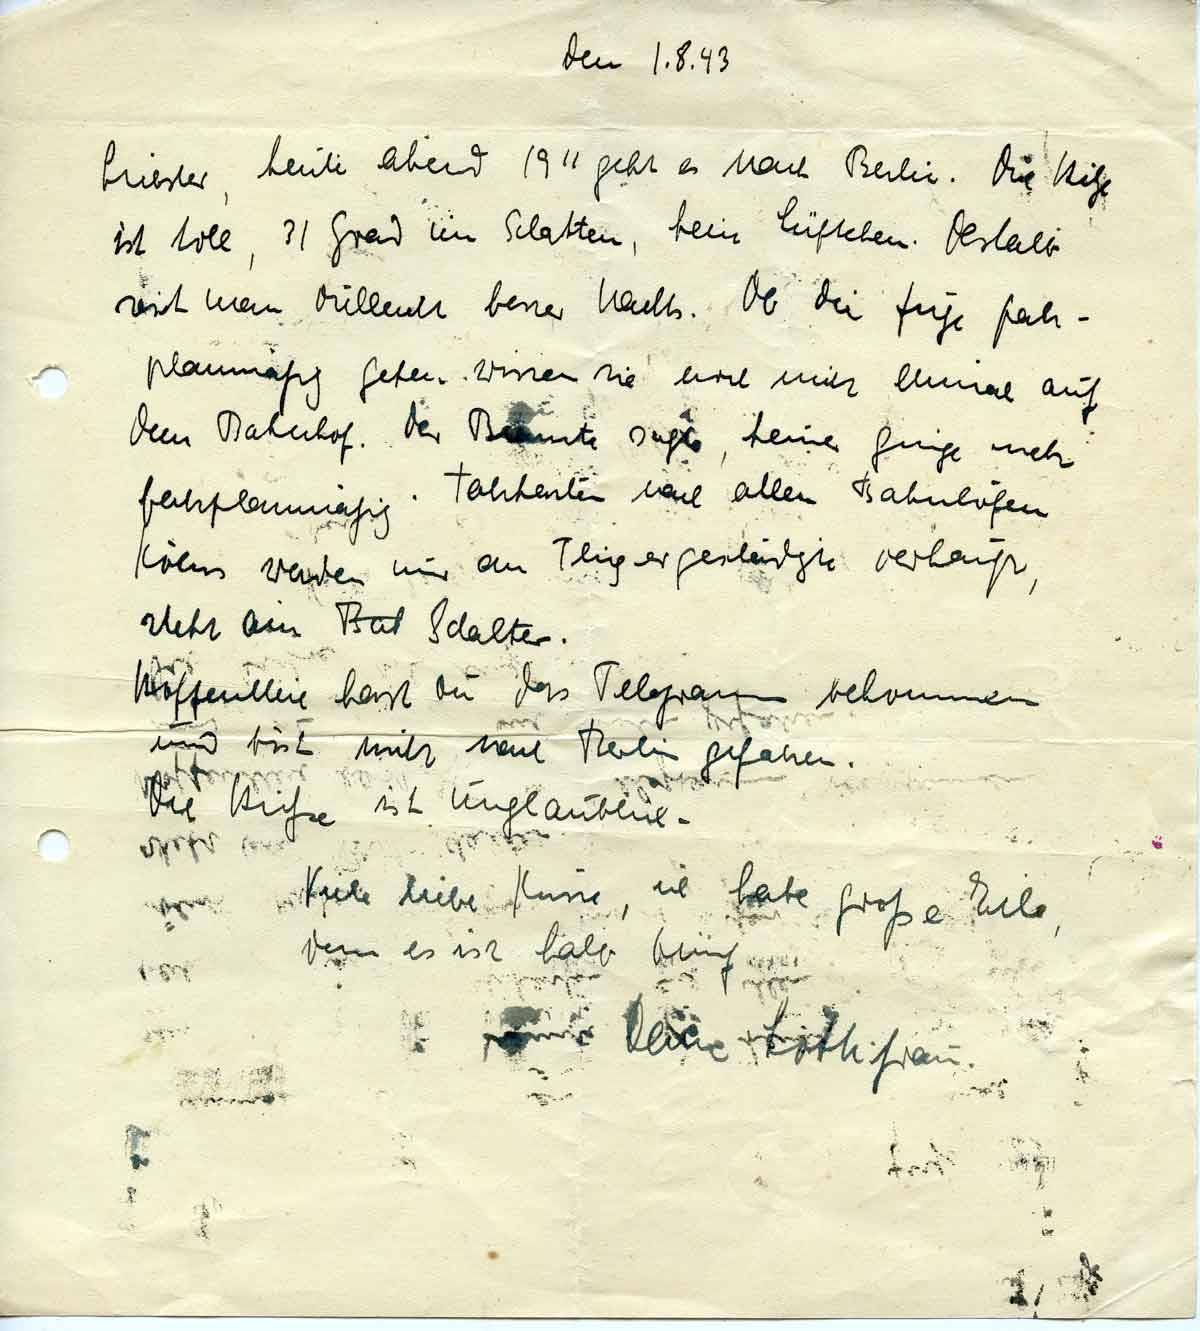 den 1.8.43
Liebster, heute abend 19 11 geht es nach Berlin. Die Hitze
ist toll, 31 Grad im Schatten, kein Lüftchen. Deshalb
reist man vielleicht besser Nachts. Ob die Züge fahr-
planmäßig gehen wissen sie noch nicht einmal auf
dem Bahnhof. Der Beamte sagte, keiner ginge mehr
fahrplanmäßig. Fahrkarten nach allen Bahnhöfen
Kölns werden nur an Fliegergeschädigte verkauft,
steht am Schalter.
Hoffentlich hast Du das Telegramm bekommen
und bist nicht nach Berlin gefahren.
Die Hitze ist unglaublich -
Viele liebe Küsse, ich habe große Eile,
denn es ist halb fünf
Deine